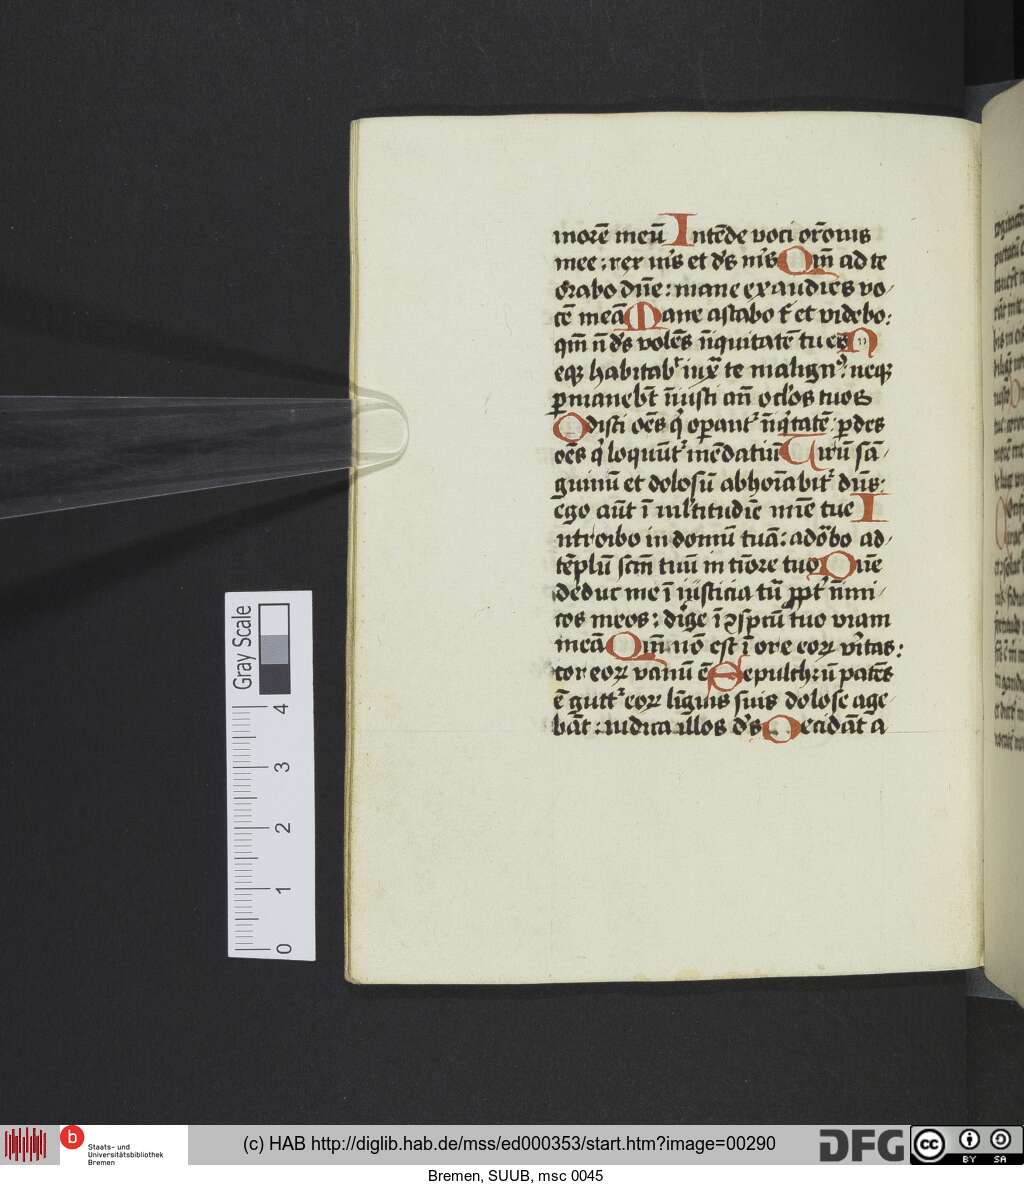 morē meū Intēde voci or̄onis
mee : rex me's et d's me's Qm̄ ad te
orabo dn̄e : mane exaudies vo
cē meā Mane astabo t̄ et videbo :
qm̄ n̄ d's volēs īiquitatē tu es N
eqꝫ habitabʳ iux̄ te malignꝰ : neqꝫ
ꝑmanebt̄ īiusti an̄ oc'los tuos
Odisti oēs q' oꝑantʳ īiq'tatē : ꝑdes
oēs q' loquūtʳ mēdatiū Uirū sā
guinū et dolosū abhoīabitʳ dn̄s :
ego aūt ī ml'titudīe mīe tue I
ntroibo in domū tuā : adōbo ad
tēplū scm̄ tuū in tīore tuo Dn̄e
deduc me ī iusticia tū ꝓpt' īimi
cos meos : di'ge ī ꝯspctū tuo viam
meā Qm̄ nō est ī ore eoꝝ v'itas :
cor eoꝝ vanū ē Sepulchrū patēs
ē guttʳ eoꝝ līguis suis dolose age
bāt : iudica illos d's Decidāt a
Gray Scale
4
3
2
1
0
b
Staats- und
Universitätsbibliothek
Bremen
(c) HAB http://diglib.hab.de/mss/ed000353/start.htm?image=00290
DFG
cc
BY SA
Bremen, SUUB, msc 0045